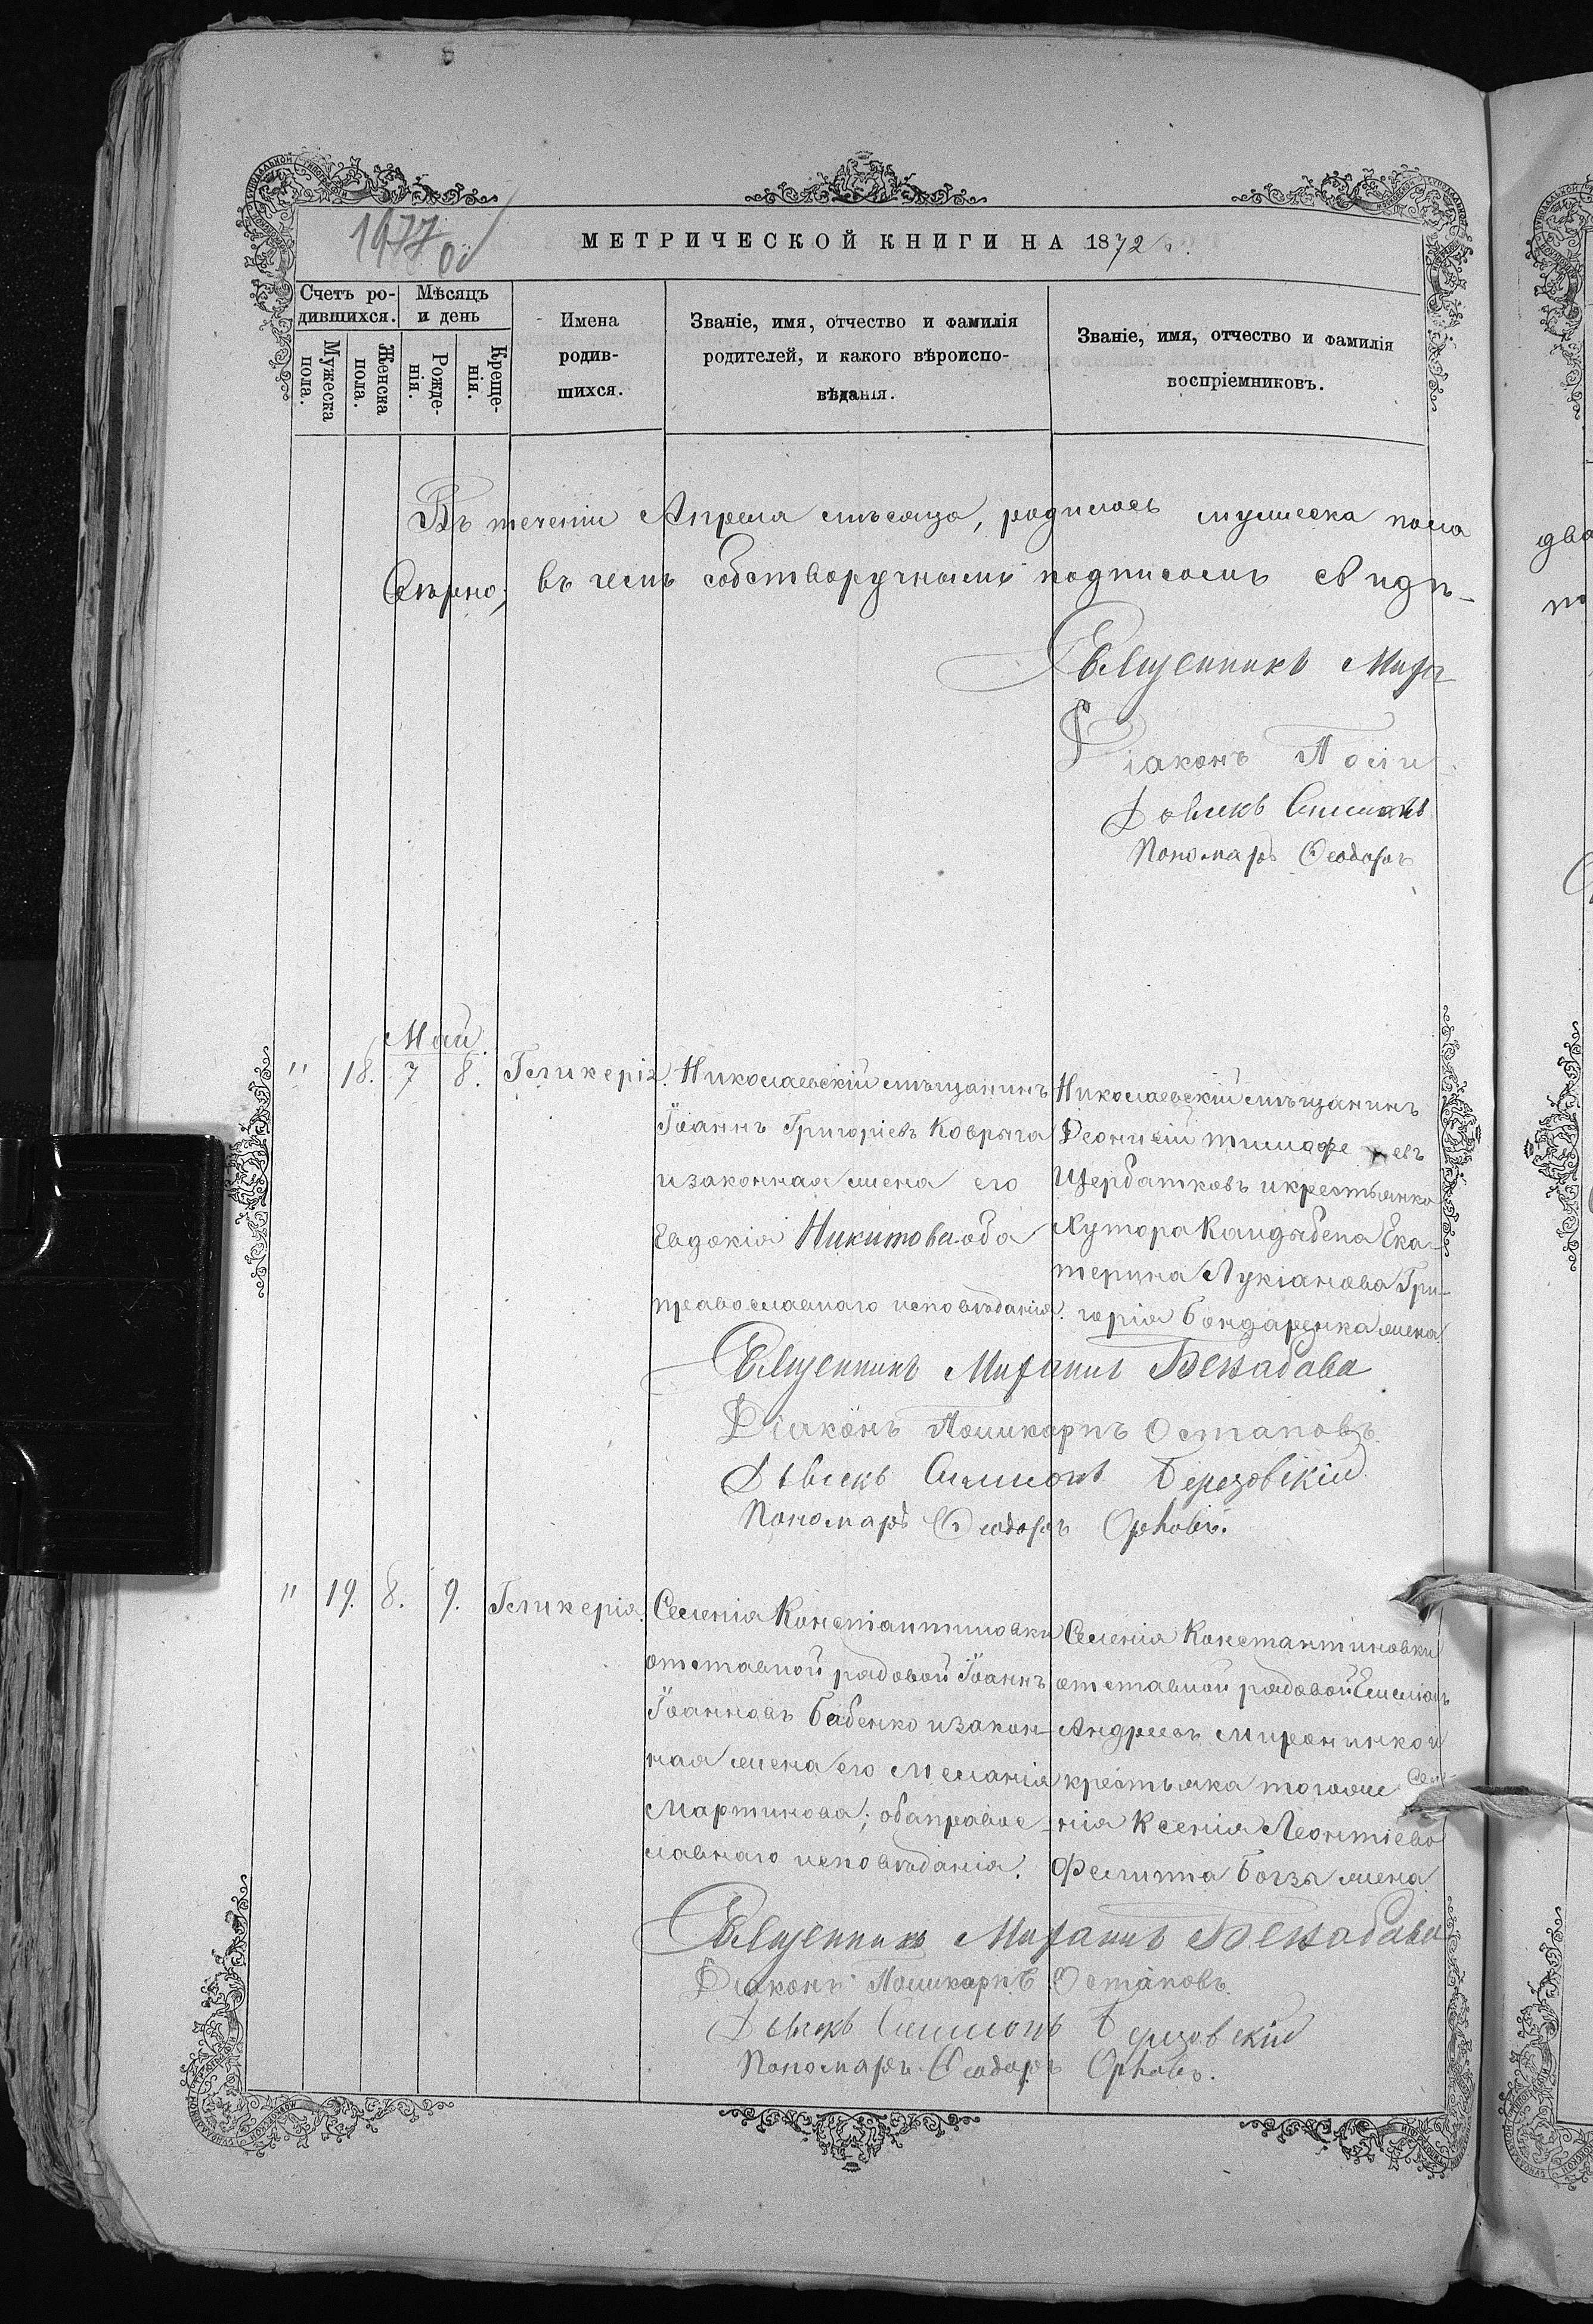 1977 об
МЕТРИЧЕСКОЙ КНИГИ НА 1872 г.
Счетъ ро-
дившихся.
Мѣсяцъ
и день
Мужеска
пола.
Женска
пола.
Рожде-
нія.
Креще-
нія.
Имена
родив-
шихся.
Званіе, имя, отчество и фамилія
родителей, и какого вѣроиспо-
вѣданія.
Званіе, имя, отчество и фамилія
воспріемниковъ.
Въ теченіи Апреля мѣсяца, родилось мужеска пола
вѣрно; въ чемъ собственоручнымъ подписомъ свидѣ-
Священникъ Мифа
Діаконъ Поли
Дьячекъ Симеонъ
Пономарь Ѳеодоръ
Май.
" 18. 7 8. Гликерія.
Николаевскій мѣщанинъ
Іоаннъ Григоріевъ Коврыга
и законная жена его
Евдокія Никитова оба
православнаго исповѣданія.
Николаевскій мѣщанинъ
Деонисій Тимофеевъ
Щербатковъ и крестьянка
Хутора Кандыбена Ека-
терина Лукіанова Гри-
горія Бондаренка жена
Священникъ Мифаилъ
Діаконъ Поликарпъ Остаповъ.
Дьячекъ Симеонъ Березовскій
Пономарь Ѳеодоръ Орловъ.
" 19. 8. 9. Гликерія.
Селенія Константиновки
отставной рядовой Іоаннъ
Іоанновъ Бабенко и закон-
ная жена его Меланія
Мартинова; оба правос-
лавнаго исповѣданія.
Селенія Константиновки
отставной рядовой Емеліанъ
Андреевъ Миронинко и
крестьяка тогоже Селе-
нія Ксенія Леонтіева
Филиппа жена
Священникъ Мифаилъ
Діаконъ Поликарпъ Остаповъ.
Дьячекъ Симеонъ Березовскій
Пономарь Ѳеодоръ Орловъ.
два